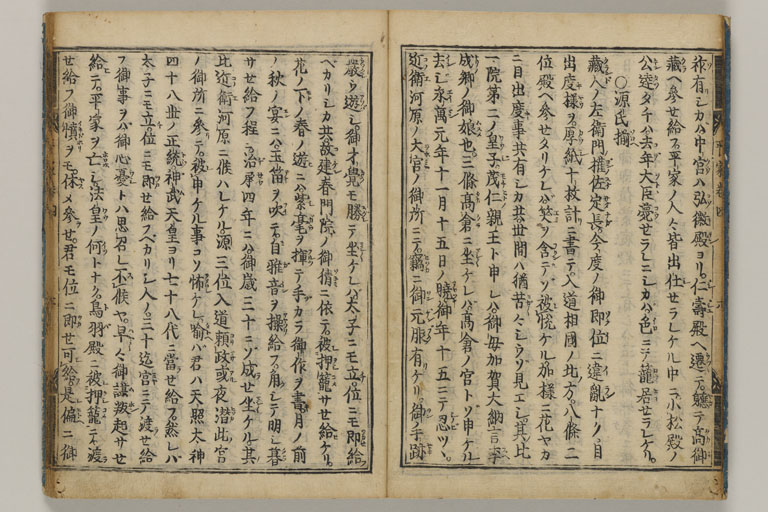 祚有シカハ中宮ハ弘徽殿ヨリ仁壽殿ヘ遷テ軈テ高御
藏ヘ參セ給フ平家ノ人々皆出仕セラレケル中ニ小松殿ノ
公達タチハ去年大臣薨セラレニシカハ色ニテ籠居セラレケリ
○源氏揃
藏人ノ左衛門權佐定長今度ノ御即位ニ違亂ナク目
出度樣ヲ厚紙十枚計ニ書テ入道相國ノ北方八條ニ
位殿ヘ參セタリケレハ笑ヲ含テソ被悦ケル加樣ニ花ヤカ
ニ目出度事共有シカ共世間ハ猶苦々シウソ見エシ其比
一院第二ノ皇子茂仁親王ト申シハ御母加賀大納言季
成卿ノ御娘也三條髙倉ニ坐ケレハ髙倉ノ宮トソ申ケル
去シ永萬元年十一月十五日ノ曉御年十五ニテ忍ツヽ
近衛河原ノ大宮ノ御所ニテ竊ニ御元服有ケリ御手跡
嚴ウ遊シ御才覺モ勝テ坐ケレハ太子ニモ立位ニモ即給
ヘカリシカ共故建春門院ノ御猜ニ依テ被押籠サセ給ケリ
花ノ下ノ春ノ遊ニハ紫毫ヲ揮テ手カラ御作ヲ書月ノ前
ノ秋ノ宴ニハ玉笛ヲ吹テ自雅音ヲ操給フ角シテ明シ暮
サセ給フ程ニ治承四年ニハ御歳三十ニソ成セ坐ケル其
比近衛河原ニ候ハレケル源三位入道頼政或夜潜此宮
ノ御所ニ參テ被申ケル事コソ怖ケレ喩ハ君ハ天照太神
四十八世ノ正統神武天皇ヨリ七十八代ニ當セ給フ然レハ
太子ニモ立位ニモ即セ給フヘカリシ人ノ三十迄宮ニテ渡セ給
フ御事ヲハ御心憂トハ思召レ不候ヤ早々御謀叛起サセ
給テ平家ヲ亡シ法皇ノ何トナク鳥羽殿ニ被押籠テ渡
セ給フ御憤ヲモ休メ參セ君モ位ニ即セ可給是偏ニ御